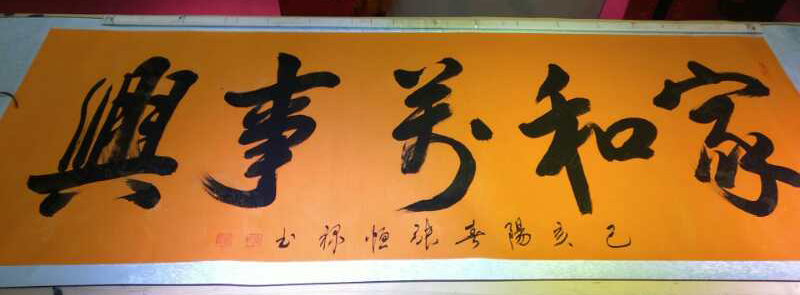 家和萬事興
己亥陽春張恒禄书